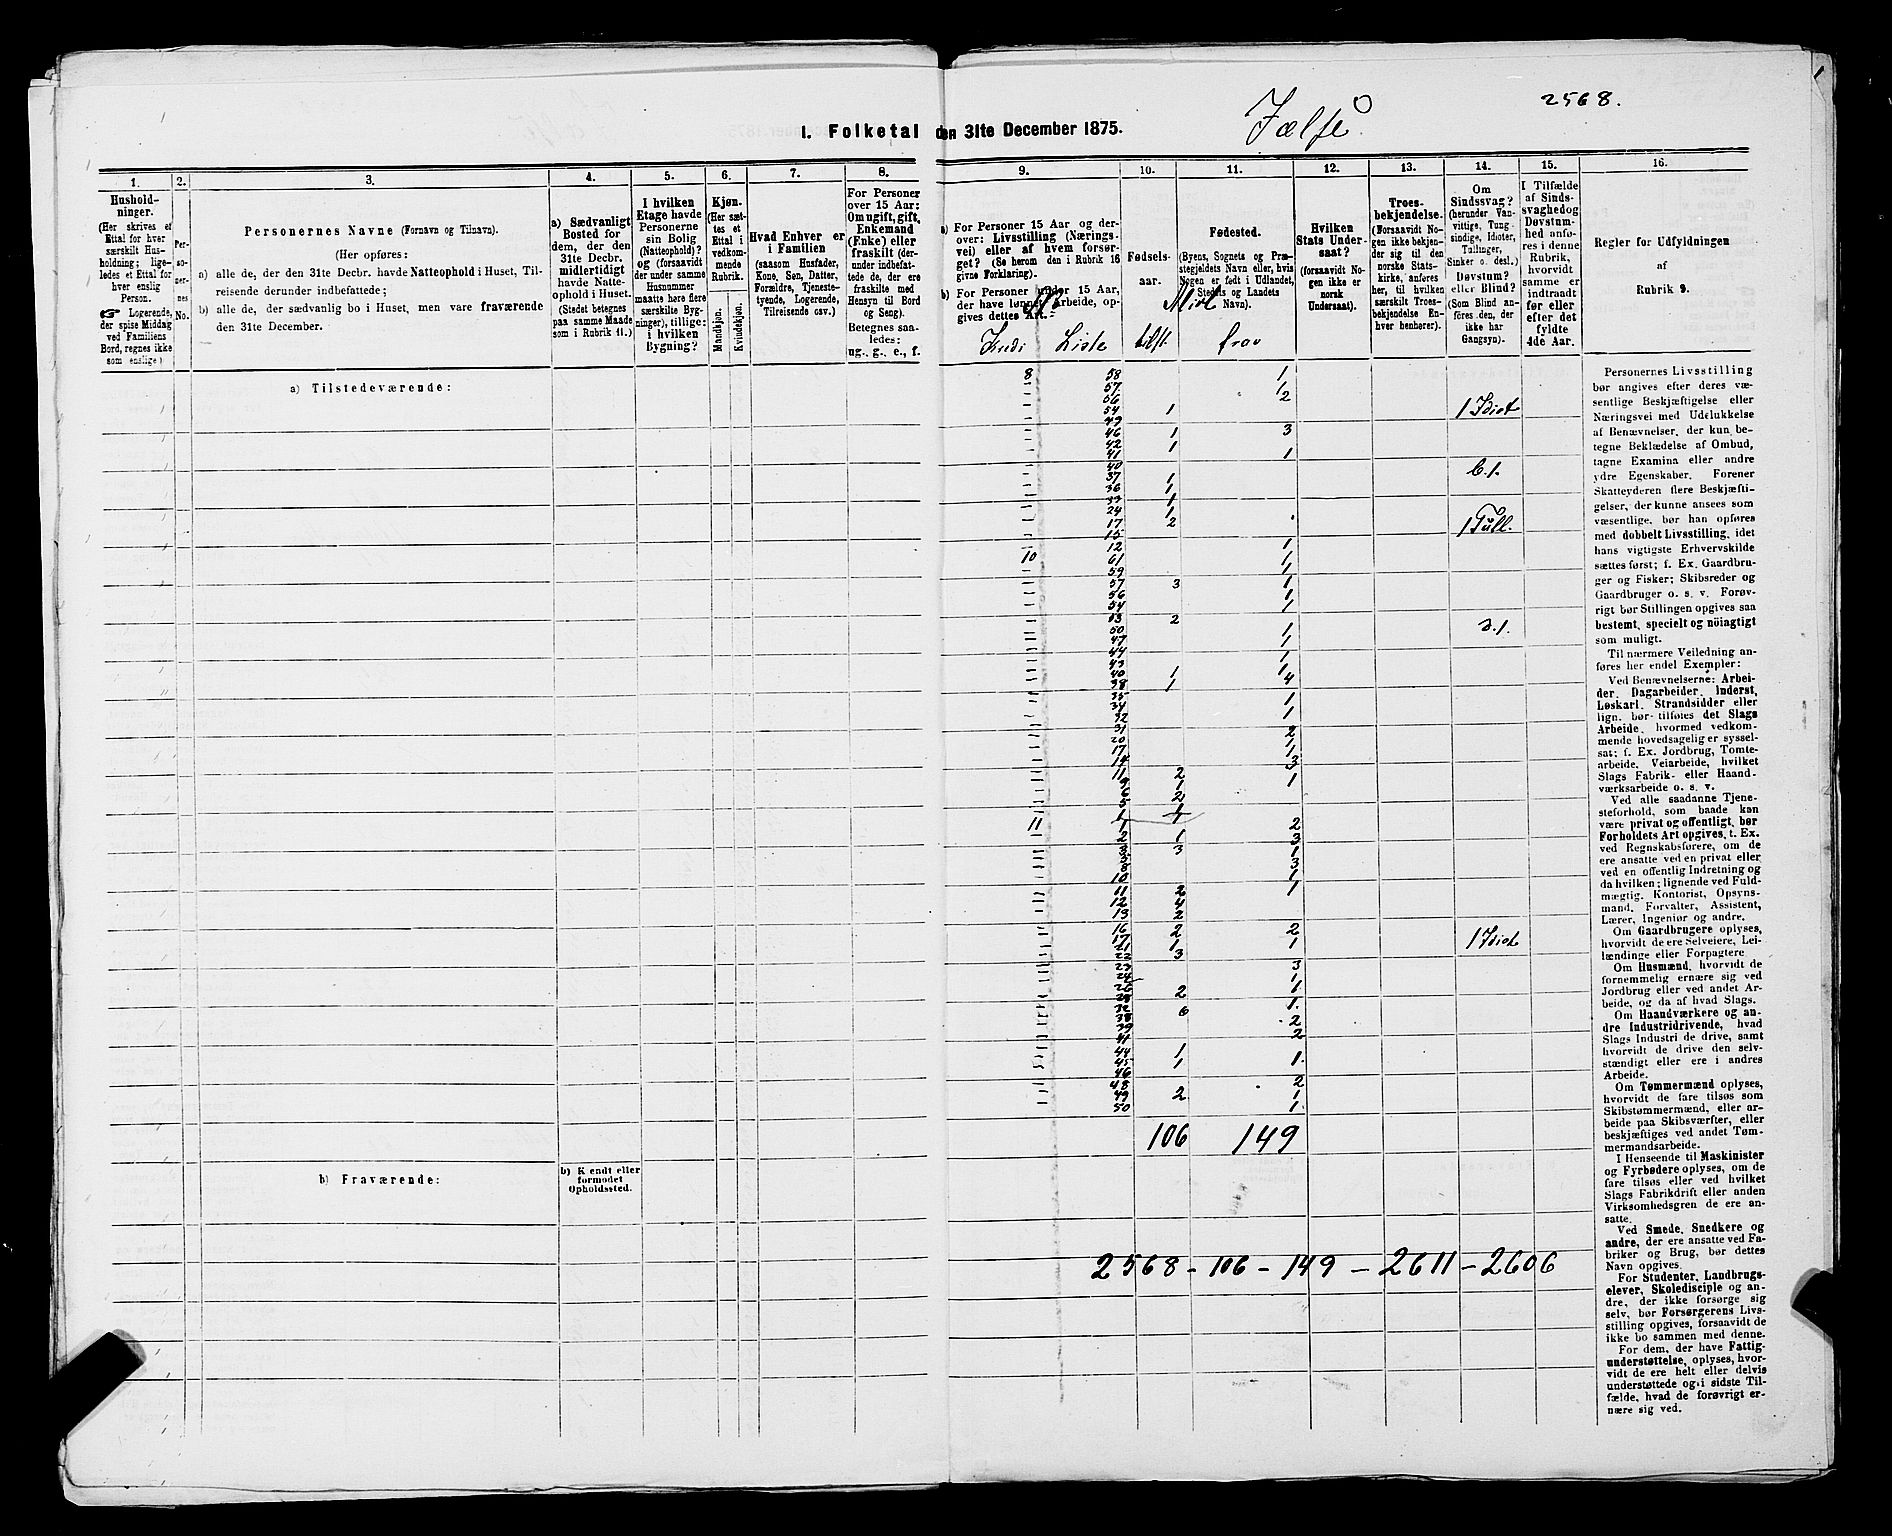 2568.
Jælsø.
I. Folketal den 31te December 1875.
1. 2. 3. 4. 5. 6. 7. 8. 9. 10. 11. 12. 13. 14. 15. 16.
Hushold-
ninger.
(Her skrives et
Ettal for hver
særskilt Hus-
holdning; lige-
ledes et Ettal for
hver enslig
Person.
☞ Logerende,
der spise Middag
ved Familiens
Bord, regnes ikke
som enslige)
Per-
so-
ner-
nes
No.
Personernes Navne (Fornavn og Tilnavn).
(Her opføres:
a) alle de, der den 31te Decbr. havde Natteophold i Huset, Til-
reisende derunder indbefattede;
b) alle de, der sædvanlig bo i Huset, men vare fraværende
den 31te December.
a) Sædvanligt
Bosted for
dem, der den
31te Decbr.
midlertidigt
havde Natte-
ophold i Huset.
(Stedet betegnes
paa samme Maade
som i Rubrik 11.)
I hvilken
Etage havde
Personerne
sin Bolig
(Natteophold)?
og (forsaavidt
der under samme
Husnummer
maatte høre flere
særskilte Byg-
ninger), tillige:
i hvilken
Bygning?
Kjøn.
(Her sæt-
tes et
Ettal i
vedkom-
mende
Rubrik.
Mandkjøn.
Kvindekjøn.
Hvad Enhver er
i Familien
(saasom Husfader,
Kone, Søn, Datter,
Forældre, Tjeneste-
tyende, Logerende,
Tilreisende osv.)
For Personer
over 15 Aar:
Om ugift, gift,
Enkemand
(Enke) eller
fraskilt (der-
under indbefat-
tede de, der ere
fraskilte med
Hensyn til Bord
og Seng).
Betegnes saa-
ledes:
ug., g., e., f.
a) For Personer 15 Aar og der-
over: Livsstilling (Nærings-
vei) eller af hvem forsør-
get? (Se herom den i Rubrik 16
givne Forklaring).
b) For Personer under 15 Aar,
der have lønnet Arbeide, op-
gives dettes Art.
Fødsels-
aar.
Fødested.
(Byens, Sognets og Præ-
stegjeldets Navn eller, hvis
Nogen er født i Udlandet,
Stedets og Landets
Navn).
Hvilken
Stats Under-
saat?
(forsaavidt No-
gen ikke er
norsk
Undersaat).
Troes-
bekjendelse.
(Forsaavidt No-
gen ikke bekjen-
der sig til den
norske Stats-
kirke, anføres
her, til hvilken
særskilt Troes-
bekjendelse En-
hver henhører).
Om
Sindssvag?
(herunder Van-
vittige, Tung-
sindige, Idioter,
Tullinger,
Sinker o. desl.)
Døvstum?
eller Blind?
(Som Blind an-
føres den, der
ikke har
Gangsyn).
I Tilfælde
af Sinds-
svaghed og
Døvstum-
hed anfø-
res i denne
Rubrik,
hvorvidt
samme er
indtraadt
før eller
efter det
fyldte
4de Aar.
Regler for Udfyldningen
af
Rubrik 9.
Kreds Liste tilst. frav
a) Tilstedeværende:
8 58 1
57 1
56 2
54 1 1 Idiot
49
46 1 3
42 1
41 1
40 b.1.
37 1
36 1
33 1
24 1
17 2 1 Tull.
15
12 1
10 61 1
59 1
57 3 1
56 1
54 1
53 2
50 1 d.1.
47 1
44 1
43 1
40 1
38 1 4
35 1
34 1
32
31 2
20 1
17 1
14 3
11 2 1
9 1
6 2
5
11 1 2
2 1 3
3 3 1
5 3
8
10 1
11 2 1
12 4
13 2
16 2 2
17 1 1 1 Idiot
21 3
22
23 3
24 1
26 2 1
28
32 6 1.
38 2
39 2
41
44 1 1.
45 1
46
48 2
49 2 1
50 1.
106 149
b) Fraværende:
b) Kjendt eller
formodet
Opholdssted.
2568 - 106 - 149 - 2611 - 2606
Personernes Livsstilling
bør angives efter deres væ-
sentlige Beskjæftigelse eller
Næringsvei med Udelukkelse
af Benævnelser, der kun be-
tegne Beklædelse af Ombud,
tagne Examina eller andre
ydre Egenskaber. Forener
Skatteyderen flere Beskjæfti-
gelser, der kunne ansees som
væsentlige, bør han opføres
med dobbelt Livsstilling, idet
hans vigtigste Erhvervskilde
sættes først; f. Ex. Gaardbru-
ger og Fisker; Skibsreder og
Gaardbruger o. s. v. Forøv-
rigt bør Stillingen opgives saa
bestemt, specielt og nöiagtigt
som muligt.
Til nærmere Veiledning an-
føres her endel Exempler:
Ved Benævnelserne: Arbei-
der, Dagarbeider, Inderst,
Løskarl, Strandsidder eller
lign. bør tilføies det Slags
Arbeide, hvormed vedkom-
mende hovedsagelig er syssel-
sat; f. Ex. Jordbrug, Tomte-
arbeide, Veiarbeide, hvilket
Slags Fabrik- eller Haand-
værksarbeide o. s. v.
Ved alle saadanne Tjene-
steforhold, som baade kan
være privat og offentligt, bør
Forholdets Art opgives, t. Ex.
ved Regnskabsførere, om de
ere ansatte ved en privat eller
ved en offentlig Indretning og
da hvilken; lignende ved Fuld-
mægtig, Kontorist, Opsyns-
mand, Forvalter, Assistent,
Lærer, Ingeniør og andre.
Om Gaardbrugere oplyses,
hvorvidt de ere Selveiere, Lei-
lændinge eller Forpagtere
Om Husmænd, hvorvidt de
fornemmelig ernære sig ved
Jordbrug eller ved andet Ar-
beide, og da af hvad Slags.
Om Haandværkere og an-
dre Industridrivende, hvad
Slags Industri de drive, samt
hvorvidt de drive den selv-
stændigt eller ere i andres
Arbeide.
Om Tømmermænd oplyses,
hvorvidt de fare tilsøs som
Skibstømmermænd, eller ar-
beide paa Skibsværfter, eller
beskjæftiges ved andet Tøm-
mermandsarbeide.
I Henseende til Maskinister
og Fyrbødere oplyses, om de
fare tilsøs eller ved hvilket
Slags Fabrikdrift eller anden
Virksomhedsgren de ere an-
satte.
Ved Smede, Snedkere og
andre, der ere ansatte ved Fa-
briker og Brug, bør dettes
Navn opgives.
For Studenter, Landbrugs-
elever, Skoledisciple og an-
dre, der ikke forsørge sig
selv, bør Forsørgerens Livs-
stilling opgives, forsaavidt de
ikke bo sammen med denne.
For dem, der have Fattig-
understøttelse, oplyses, hvor-
vidt de ere helt eller delvis
understøttede og i sidste Til-
fælde, hvad de forøvrigt er-
nære sig ved.